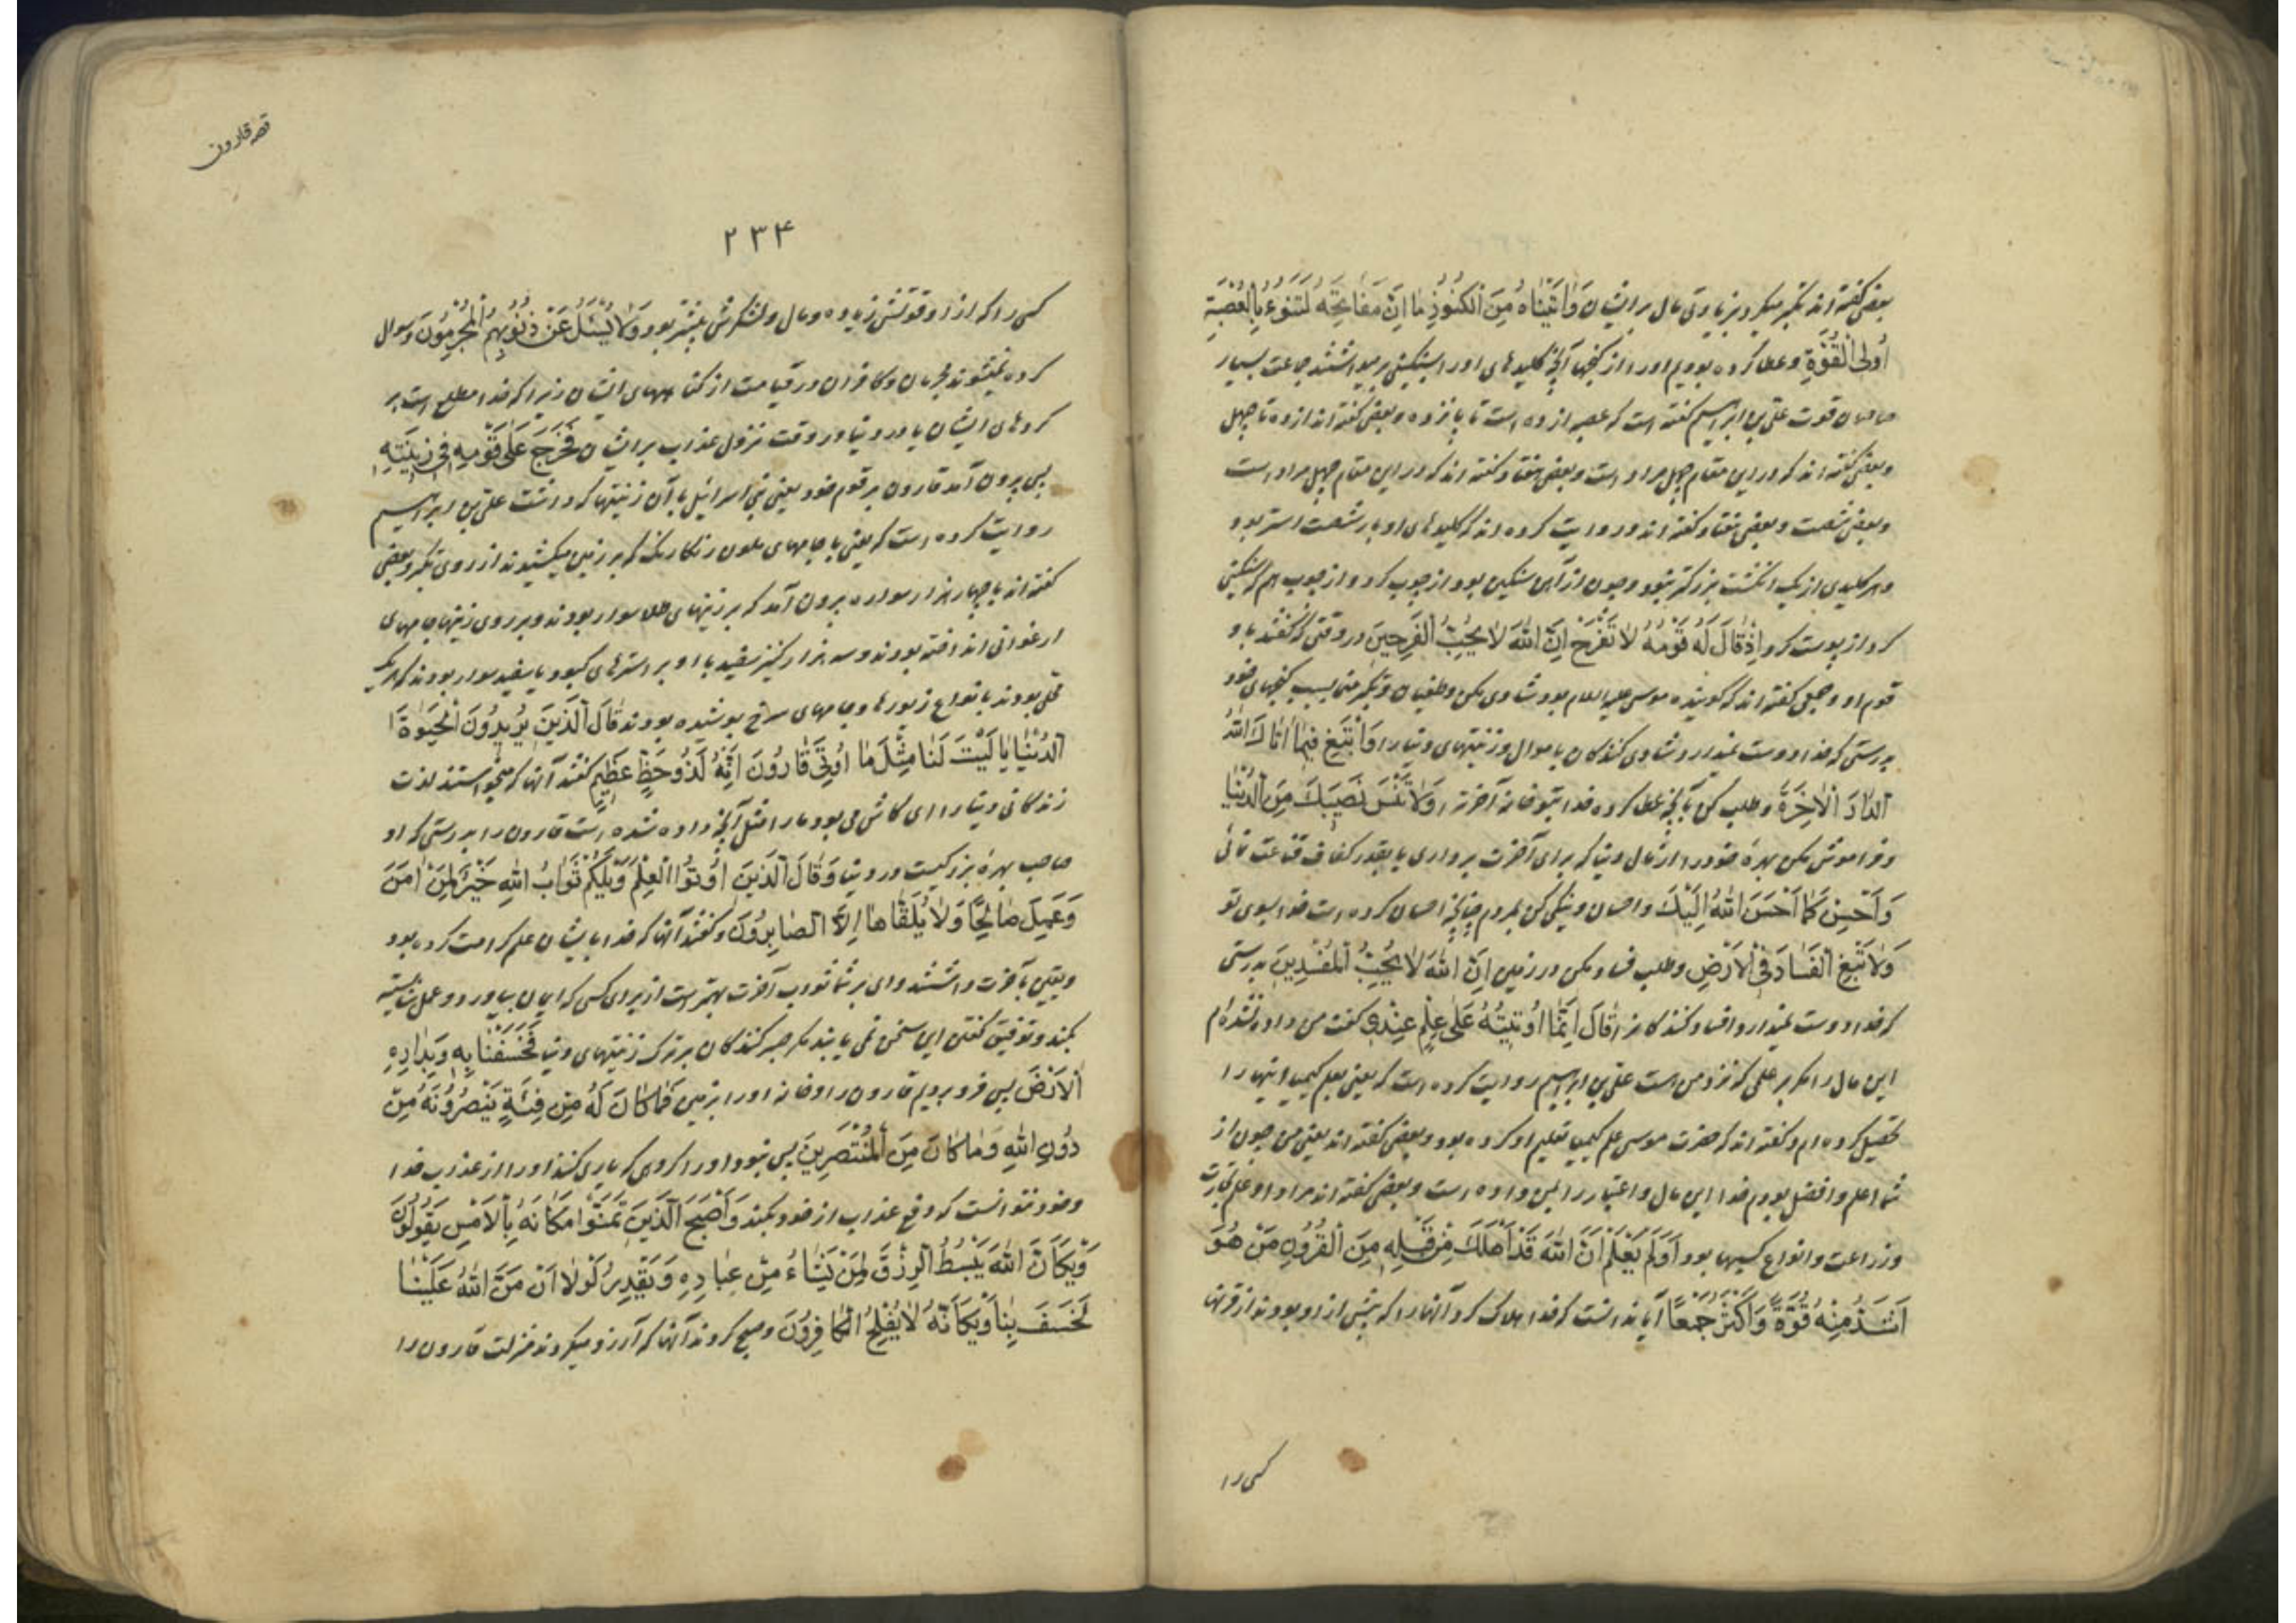 بعضی گفته اند تکبر میکرد بزیادتی مال بر ایشان وَاٰتَیْنَاهُ مِنَ الْکُنُوزِ مَا اِنَّ مَفَاتِحَهُ لَتَنُوءُ بِالْعُصْبَةِ
اُولِی الْقُوَّةِ و عطا کرده بودیم او را از گنجها آنچه کلیدهای او را بسنگینی برمیداشتند جماعت بسیار
صاحبان قوت علی بن ابراهیم گفته است که عصبه از ده است تا پانزده و بعضی گفته اند از ده تا چهل
و بعضی گفته اند که در این مقام چهل مراد است و بعضی هفتاد گفته اند که در این مقام چهل مراد است
و بعضی شصت و بعضی هفتاد گفته اند و روایت کرده اند که کلیدهای او بار شصت استر بود
و هر کلیدی از یک انگشت بزرگتر نبود و چون از آهن سنگین بود از چوب کرد و از چوب هم که سنگینی
کرد از پوست کرد اِذْ قَالَ لَهُ قَوْمُهُ لَا تَفْرَحْ اِنَّ اللّٰهَ لَا یُحِبُّ الْفَرِحِینَ در وقتی که گفتند با و
قوم او و جمعی گفته اند که گوینده موسی علیه السلام بود شادی مکن و طغیان و تکبر منما بسبب گنجهای خود
بدرستی که خدا دوست نمیدارد شادی کنندگان باموال و زینتهای دنیا را وَابْتَغِ فِیمَا اٰتَاكَ اللّٰهُ
الدَّارَ الْاٰخِرَةَ و طلب کن بآنچه عطا کرده خدا بتو خانه آخرت را وَلَا تَنْسَ نَصِیبَكَ مِنَ الدُّنْیَا
و فراموش مکن بهرۀ خود را از مال دنیا که برای آخرت برداری یا بقدر کفاف قناعت نمائی
وَاَحْسِنْ کَمَا اَحْسَنَ اللّٰهُ اِلَیْكَ و احسان و نیکی کن بمردم چنانچه احسان کرده است خدا بسوی تو
وَلَا تَبْغِ الْفَسَادَ فِی الْاَرْضِ و طلب فساد مکن در زمین اِنَّ اللّٰهَ لَا یُحِبُّ الْمُفْسِدِینَ بدرستی
که خدا دوست نمیدارد افساد کنندگانرا قَالَ اِنَّمَا اُوتِیتُهُ عَلٰی عِلْمٍ عِنْدِی گفت من داده نشده ام
این مال را مگر بر علمی که نزد من است علی بن ابراهیم روایت کرده است که یعنی بعلم کیمیا اینها را
تحصیل کرده ام و گفته اند که حضرت موسی علم کیمیا تعلیم او کرده بود و بعضی گفته اند یعنی من چون از
شما اعلم و افضل بودم خدا این مال و اعتبار را بمن داده است و بعضی گفته اند مراد او علم تجارت
و زراعت و انواع کسبها بود اَوَلَمْ یَعْلَمْ اَنَّ اللّٰهَ قَدْ اَهْلَكَ مِنْ قَبْلِهِ مِنَ الْقُرُونِ مَنْ هُوَ
اَشَدُّ مِنْهُ قُوَّةً وَاَکْثَرُ جَمْعًا آیا ندانست که خدا هلاک کرد آنها را که پیش از او بودند از قرنها
کسی را
قصه قارون
۲۳۴
کسی را که از او قوتش زیاده و مال و لشکرش بیشتر بود وَلَا یُسْئَلُ عَنْ ذُنُوبِهِمُ الْمُجْرِمُونَ و سوال
کرده نمیشوند مجرمان و کافران در قیامت از گناههای ایشان زیرا که خدا مطلع است بر
کردهای ایشان یا در دنیا در وقت نزول عذاب بر ایشان فَخَرَجَ عَلٰی قَوْمِهِ فِی زِینَتِهِ
پس بیرون آمد قارون بر قوم خود یعنی بنی اسرائیل با آن زینتها که داشت علی بن ابراهیم
روایت کرده است که یعنی با جامهای ملون رنگارنگ که بر زمین میکشیدند از روی تکبر و بعضی
گفته اند با چهار هزار سواره بیرون آمد که بر زینهای طلا سوار بودند و بر روی زینها جامهای
ارغوانی انداخته بودند و سه هزار کنیز سفید با او بر استرهای کبود یا سفید سوار بودند که هر یک
محلی بودند بانواع زیورها و جامهای سرخ پوشیده بودند قَالَ الَّذِینَ یُرِیدُونَ الْحَیٰوةَ
الدُّنْیَا یَا لَیْتَ لَنَا مِثْلَ مَا اُوتِیَ قَارُونُ اِنَّهُ لَذُو حَظٍّ عَظِیمٍ گفتند آنها که میخواستند لذت
زندگانی دنیا را ای کاش می بود ما را مثل آنچه داده شده است قارون را بدرستی که او
صاحب بهرۀ بزرگیست در دنیا وَقَالَ الَّذِینَ اُوتُوا الْعِلْمَ وَیْلَکُمْ ثَوَابُ اللّٰهِ خَیْرٌ لِمَنْ اٰمَنَ
وَعَمِلَ صَالِحًا وَلَا یُلَقَّاهَا اِلَّا الصَّابِرُونَ و گفتند آنها که خدا بایشان علم کرامت کرده بود
و یقین بآخرت داشتند وای بر شما ثواب آخرت بهتر است از برای کسی که ایمان بیاورد و عمل شایسته
بکند و توفیق گفتن این سخن نمی یابند مگر صبر کنندگان بر ترک زینتهای دنیا فَخَسَفْنَا بِهِ وَبِدَارِهِ
الْاَرْضَ پس فرو بردیم قارون را و خانه او را بزمین فَمَا کَانَ لَهُ مِنْ فِئَةٍ یَنْصُرُونَهُ مِنْ
دُونِ اللّٰهِ وَمَا کَانَ مِنَ الْمُنْتَصِرِینَ پس نبود او را گروهی که یاری کنند او را از عذاب خدا
و خود نتوانست که دفع عذاب از خود بکند وَاَصْبَحَ الَّذِینَ تَمَنَّوْا مَکَانَهُ بِالْاَمْسِ یَقُولُونَ
وَیْکَاَنَّ اللّٰهَ یَبْسُطُ الرِّزْقَ لِمَنْ یَشَاءُ مِنْ عِبَادِهِ وَیَقْدِرُ لَوْلَا اَنْ مَنَّ اللّٰهُ عَلَیْنَا
لَخَسَفَ بِنَا وَیْکَاَنَّهُ لَا یُفْلِحُ الْکَافِرُونَ و صبح کردند آنها که آرزو میکردند منزلت قارون را